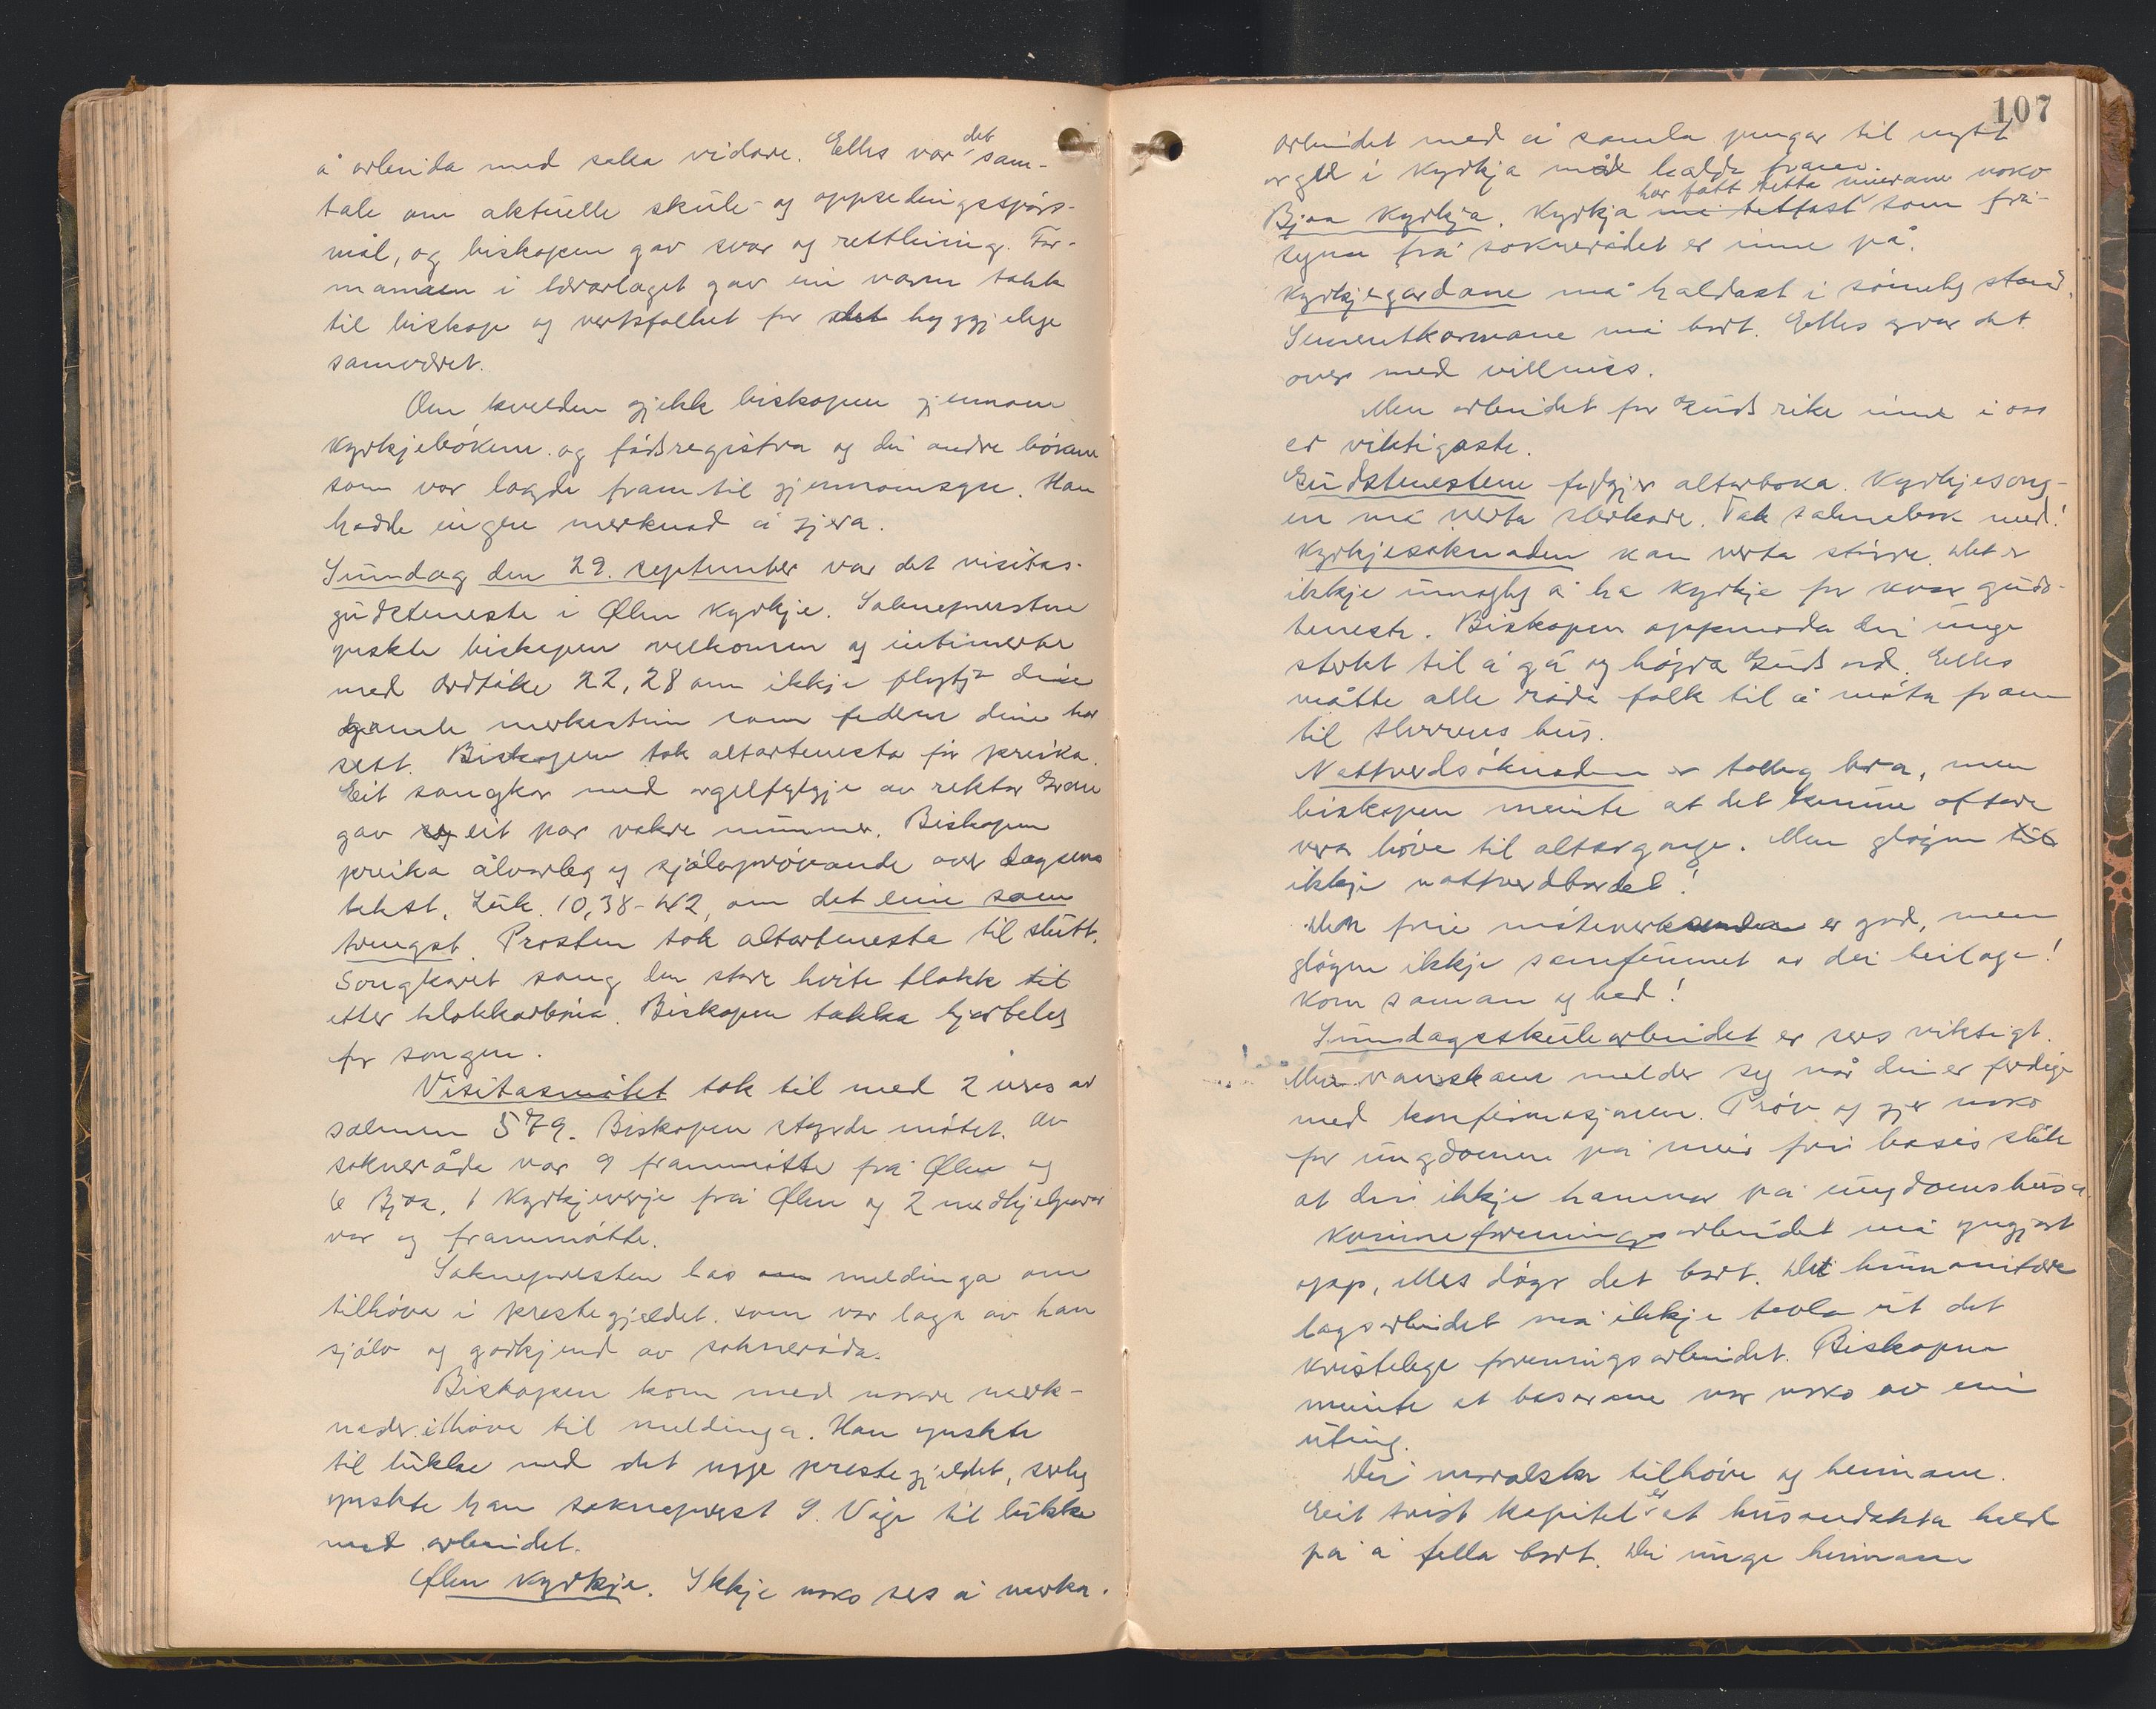 å arbeida med saka vidare. Elles var det sam-
tale om aktuelle skule- og oppsedingsspørs-
mål, og biskopen gav svar og rettleiing. For-
mannen i lærarlaget gav ein varm takk
til biskop og vertsfolket for det hyggjelege
samværet.
Om kvelden gjekk biskopen gjennom
kyrkjebøkene og fødsregistra og dei andre bøkene
som var lagde fram til gjennomsyn. Han
hadde ingen merknad å gjera.
Sundag den 29. september var det visitas-
gudsteneste i Ølen kyrkje. Soknepresten
ynskte biskopen velkomen og intimerte
med Ordtøke 22,28 om ikkje flytja dine
gamle merkestein som federne dine har
sett. Biskopen tok altarteneste før preika.
Eit songkor med orgelfylgje av rektor Gram
gav eit par vakre nummer. Biskopen
preika ålvorleg og sjølvprøvande over dagsens
tekst, Luk. 10,38-42, om det eine som
trengst. Prosten tok altarteneste til slutt.
Songkoret song den store hvite flokk til
etter klokkarbøna. Biskopen takka hjarteleg
for songen.
Visitasmøtet tok til med 2 vers av
salmen 579. Biskopen styrde møtet. Av
sokneråda var 9 frammøtte frå Ølen og
6 Bjoa, 1 kyrkjeverje frå Ølen og 2 medhjelparar
var og frammøtte.
Soknepresten las meldinga om
tilhøva i prestegjeldet som var laga av han
sjølv og godkjend av sokneråda.
Biskopen kom med nokre merk-
nader i høve til meldinga. Han ynskte
til lukke med det nye prestegjeldet, serleg
ynskte han sokneprest S. Våge til lukke
med arbeidet.
Ølen kyrkje. Ikkje noko ses å merka.
107
Arbeidet med å samla pengar til nytt
orgel i kyrkja må halde fram.
Bjoa kyrkja. Kyrkja har fått tetta murane noko som frå-
segna frå soknerådet er inne på.
Kyrkjegardane må haldast i sømeleg stand.
Sementkarmane må bort. Elles gror det
over med villniss.
Men arbeidet for Guds rike inne i oss
er viktigaste.
Gudstenestene fylgjer altarboka. Kyrkjesong-
en må verta sterkare. Tak salmebok med!
Kyrkjesoknaden kan verta større. Det er
ikkje umogleg å ha kyrkje for kvar guds-
teneste. Biskopen oppmoda dei unge
sterkt til å gå og høyra Guds ord. Elles
måtte alle råda folk til å møta fram
til Herrens hus.
Nattverdsøknaden er tolleg bra, men
biskopen meinte at det kunne oftare
vera høve til altargonge. Men gløym
ikkje nattverdbordet!
Den frie møteverksemda er god, men
gløym ikkje samfunnet av dei heilage!
Kom saman og bed!
Sundagsskulearbeidet er sers viktigt.
Men vanskane melder seg når dei er ferdige
med konfirmasjonen. Prøv og gjer noko
for ungdomen på meir fri basis slik
at dei ikkje hamnar på ungdomshusa.
Kvinneforeningsarbeidet må yngjast
opp, elles døyr det bort. Det humanitære
lagsarbeidet må ikkje tevla ut det
kristelege foreningsarbeidet. Biskopen
meinte at basarane var noko av ein
uting.
Dei moralske tilhøve og heimane.
Eit trist kapitel er at husandakta held
på å falla bort. Dei unge heimane